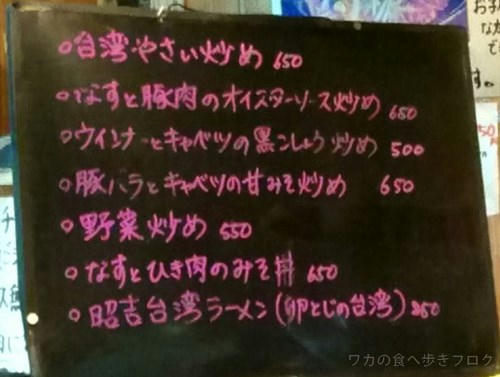 ○台湾やさい炒め 650
○なすと豚肉のオイスターソース炒め 650
○ウィンナーとキャベツの黒こしょう炒め 500
○豚バラとキャベツの甘みそ炒め 650
○野菜炒め 550
○なすとひき肉のみそ丼 650
○昭吉台湾ラーメン(卵とじの台湾) 850
ワカの食べ歩きブログ